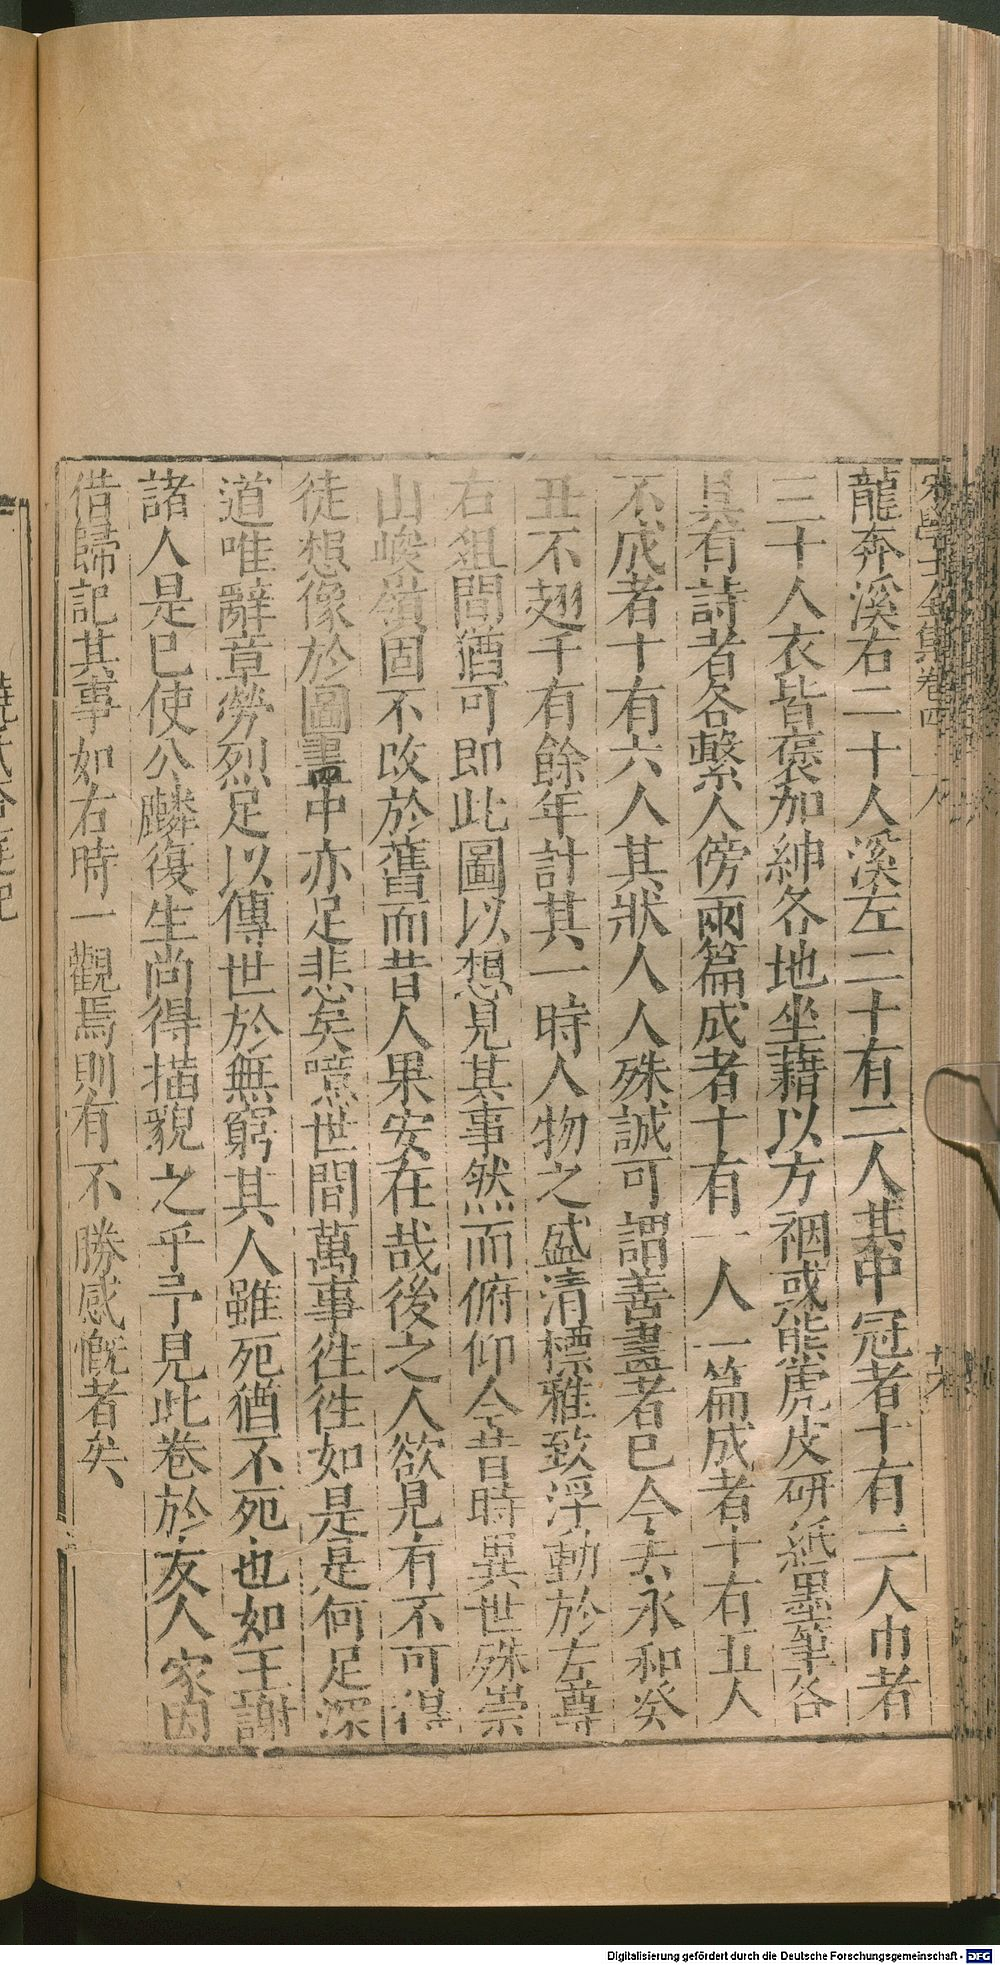 宋學士全集卷四
龍奔溪右二十人溪左二十有二人其中冠者十有二人巾者
三十人衣皆褒加紳各地坐藉以方裀或熊虎皮研紙墨筆各
具有詩者各繫人傍兩篇成者十有一人一篇成者十有五人
不成者十有六人其狀人人殊誠可謂善畫者已今去永和癸
丑不翅千有餘年計其一時人物之盛清標雅致浮動於左尊
右俎間猶可即此圖以想見其事然而俯仰今昔時異世殊崇
山峻嶺固不改於舊而昔人果安在哉後之人欲見有不可得
徒想像於圖畫中亦足悲矣噫世間萬事往往如是是何足深
道唯辭章勞烈足以傳世於無窮其人雖死猶不死也如王謝
諸人是已使公麟復生尚得描貌之乎予見此卷於友人家因
借歸記其事如右時一觀焉則有不勝感慨者矣
Digitalisierung gefördert durch die Deutsche Forschungsgemeinschaft - DFG